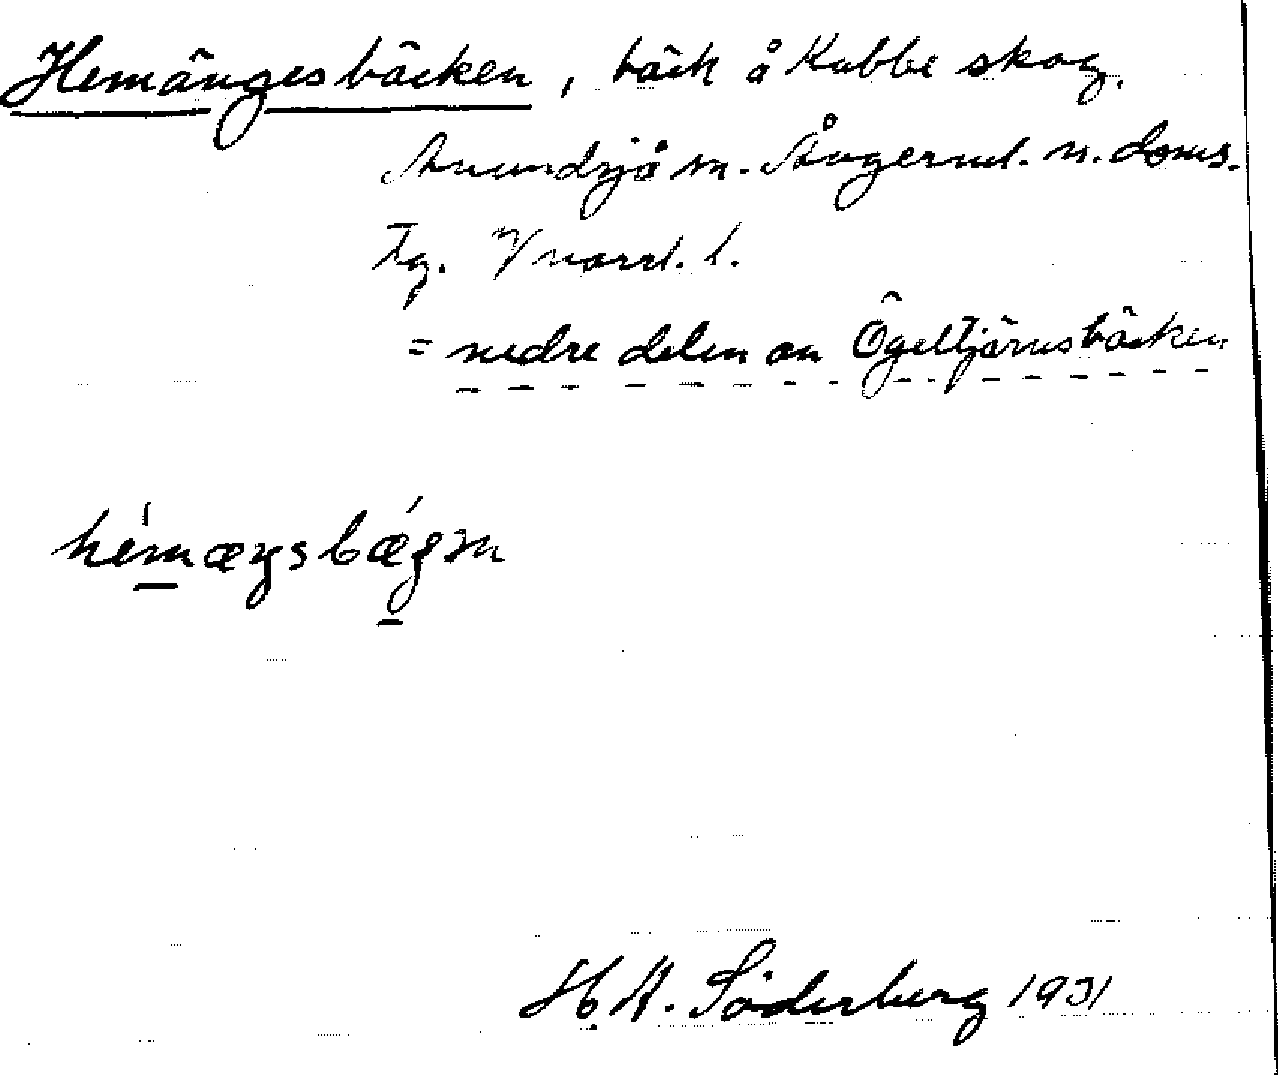 Hemängesbäcken, bäck å Kubbe skog,
Anundsjö sn. Ångerml. n. doms.
Tg. V norrl. l.
= nedre delen av Ögeltjärnsbäcken
hémæŋsbǽgm
H. A. Söderberg 1931